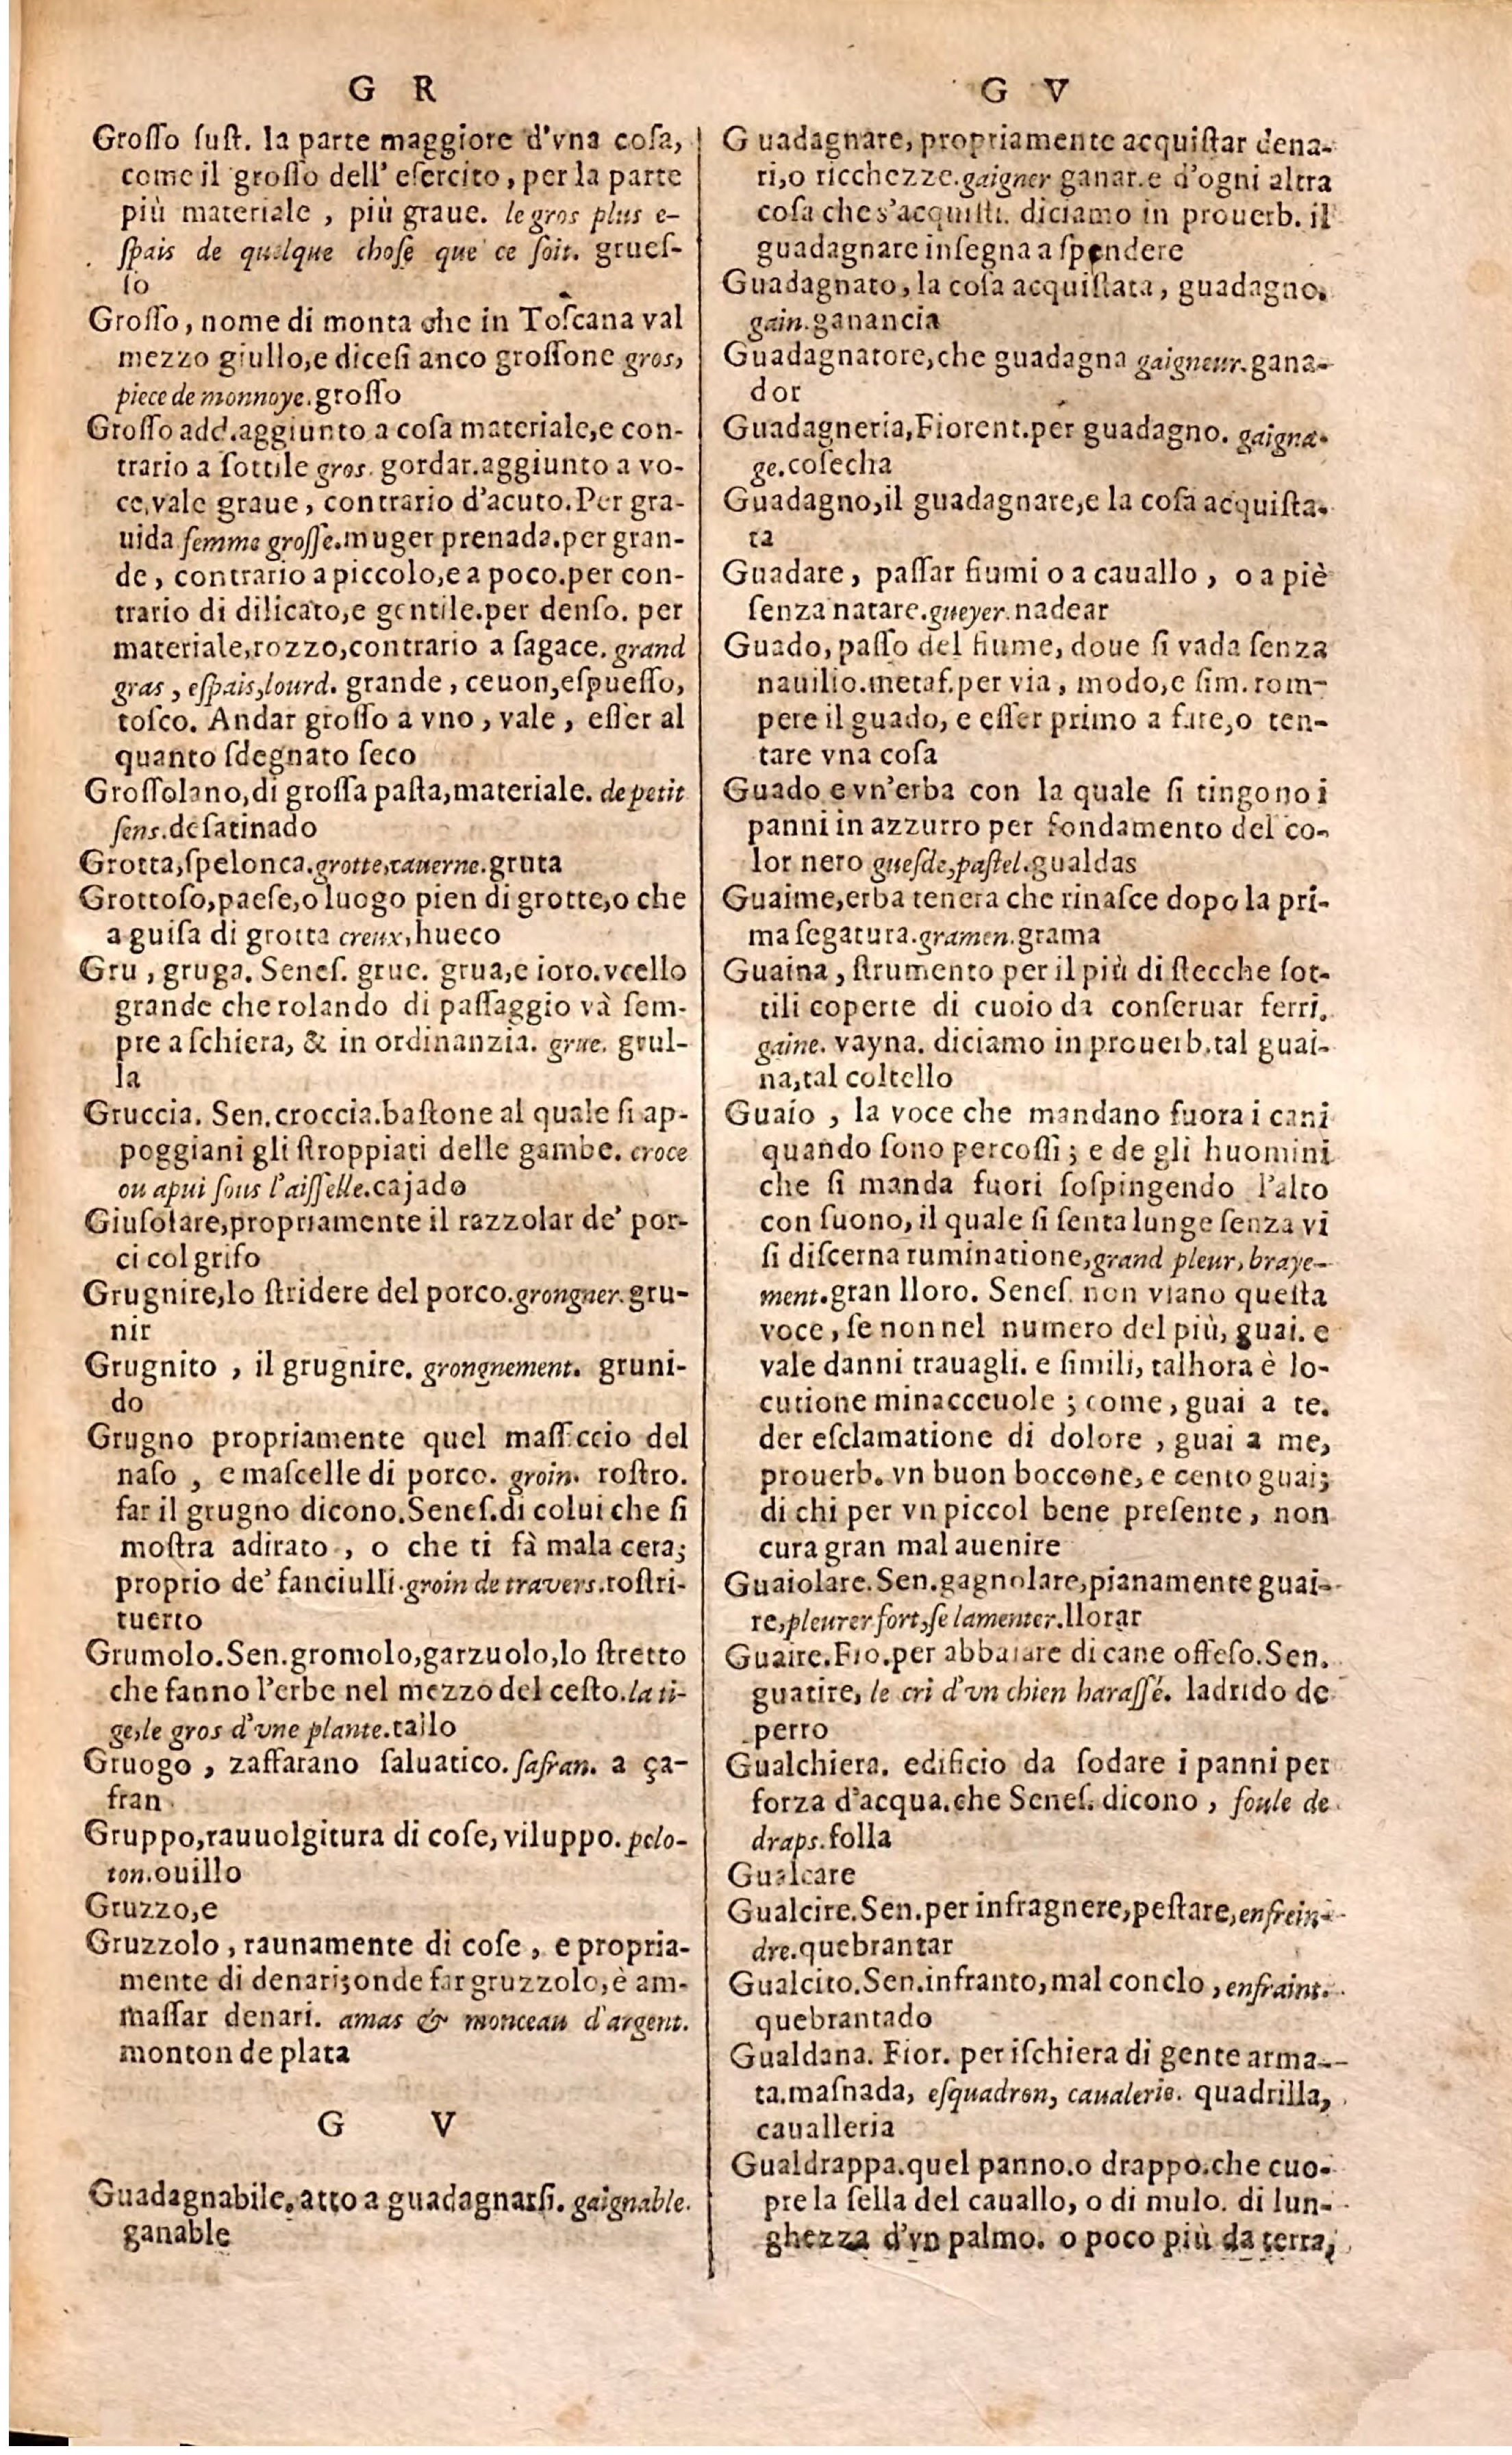 G R
Groſſo ſuſt. la parte maggiore d'vna coſa,
come il groſſo dell' eſercito, per la parte
più materiale, più graue. le gros plus e-
ſpais de quelque choſe que ce ſoit. grueſ-
ſo
Groſſo, nome di monta che in Toſcana val
mezzo giullo,e diceſi anco groſſone gros,
piece de monnoye.groſſo
Groſſo add.aggiunto a coſa materiale,e con-
trario a ſottile gros. gordar.aggiunto a vo-
ce,vale graue, contrario d'acuto.Per gra-
uida femme groſſe.muger prenada.per gran-
de, contrario a piccolo,e a poco.per con-
trario di dilicato,e gentile.per denſo. per
materiale,rozzo,contrario a ſagace. grand
gras, eſpais,lourd. grande, ceuon,eſpueſſo,
toſco. Andar groſſo a vno, vale, eſſer al
quanto ſdegnato ſeco
Groſſolano,di groſſa paſta,materiale. de petit
ſens.deſatinado
Grotta,ſpelonca.grotte,tauerne.gruta
Grottoſo,paeſe,o luogo pien di grotte,o che
a guiſa di grotta creux,hueco
Gru, gruga. Seneſ. grue. grua,e ioro.vcello
grande che rolando di paſſaggio và ſem-
pre a ſchiera, & in ordinanzia. grue. grul-
la
Gruccia. Sen.croccia.baſtone al quale ſi ap-
poggiani gli ſtroppiati delle gambe. croce
ou apui ſous l'aiſſelle.cajado
Giuſolare,propriamente il razzolar de' por-
ci col griſo
Grugnire,lo ſtridere del porco.grongner.gru-
nir
Grugnito, il grugnire. grongnement. gruni-
do
Grugno propriamente quel maſſiccio del
naſo, e maſcelle di porco. groin. roſtro.
far il grugno dicono.Seneſ.di colui che ſi
moſtra adirato, o che ti fà mala cera;
proprio de' fanciulli.groin de travers.roſtri-
tuerto
Grumolo.Sen.gromolo,garzuolo,lo ſtretto
che fanno l'erbe nel mezzo del ceſto.la ti-
ge,le gros d'vne plante.tallo
Gruogo, zaffarano ſaluatico. ſafran. a ça-
fran
Gruppo,rauuolgitura di coſe, viluppo. pelo-
ton.ouillo
Gruzzo,e
Gruzzolo, raunamente di coſe, e propria-
mente di denari;onde far gruzzolo,è am-
maſſar denari. amas & monceau d'argent.
monton de plata
G V
Guadagnabile.atto a guadagnarſi. gaignable.
ganable
G V
Guadagnare, propriamente acquiſtar dena-
ri,o ricchezze.gaigner ganar.e d'ogni altra
coſa che s'acquiſti. diciamo in prouerb. il
guadagnare inſegna a ſpendere
Guadagnato, la coſa acquiſtata, guadagno.
gain.ganancia
Guadagnatore,che guadagna gaigneur.gana-
dor
Guadagneria,Fiorent.per guadagno. gaigna-
ge.coſecha
Guadagno,il guadagnare,e la coſa acquiſta-
ta
Guadare, paſſar fiumi o a cauallo, o a piè
ſenza natare.gueyer.nadear
Guado, paſſo del fiume, doue ſi vada ſenza
nauilio.metaf.per via, modo,e ſim. rom-
pere il guado, e eſſer primo a fare,o ten-
tare vna coſa
Guado e vn'erba con la quale ſi tingono i
panni in azzurro per fondamento del co-
lor nero gueſde,paſtel.gualdas
Guaime,erba tenera che rinaſce dopo la pri-
ma ſegatura.gramen.grama
Guaina, ſtrumento per il più di ſtecche ſot-
tili coperte di cuoio da conſeruar ferri.
gaine. vayna. diciamo in prouerb.tal guai-
na,tal coltello
Guaio, la voce che mandano fuora i cani
quando ſono percoſſi; e de gli huomini
che ſi manda fuori ſoſpingendo l'alto
con ſuono, il quale ſi ſenta lunge ſenza vi
ſi diſcerna ruminatione,grand pleur, braye-
ment.gran lloro. Seneſ. non vſano queſta
voce, ſe non nel numero del più, guai. e
vale danni trauagli. e ſimili, talhora è lo-
cutione minacceuole; come, guai a te.
der eſclamatione di dolore, guai a me,
prouerb. vn buon boccone, e cento guai;
di chi per vn piccol bene preſente, non
cura gran mal auenire
Guaiolare.Sen.gagnolare,pianamente guai-
re,pleurer fort,ſe lamenter.llorar
Guaire.Fio.per abbaiare di cane offeſo.Sen.
guatire, le cri d'vn chien haraſſé. ladrido de
perro
Gualchiera. edificio da ſodare i panni per
forza d'acqua.che Seneſ. dicono, foule de
draps.folla
Gualcare
Gualcire.Sen.per infragnere,peſtare,enfrein-
dre.quebrantar
Gualcito.Sen.infranto,mal conclo,enfraint.
quebrantado
Gualdana. Fior. per iſchiera di gente arma-
ta.maſnada, eſquadron, caualerie. quadrilla,
caualleria
Gualdrappa.quel panno.o drappo.che cuo-
pre la ſella del cauallo, o di mulo. di lun-
ghezza d'vn palmo. o poco più da terra,